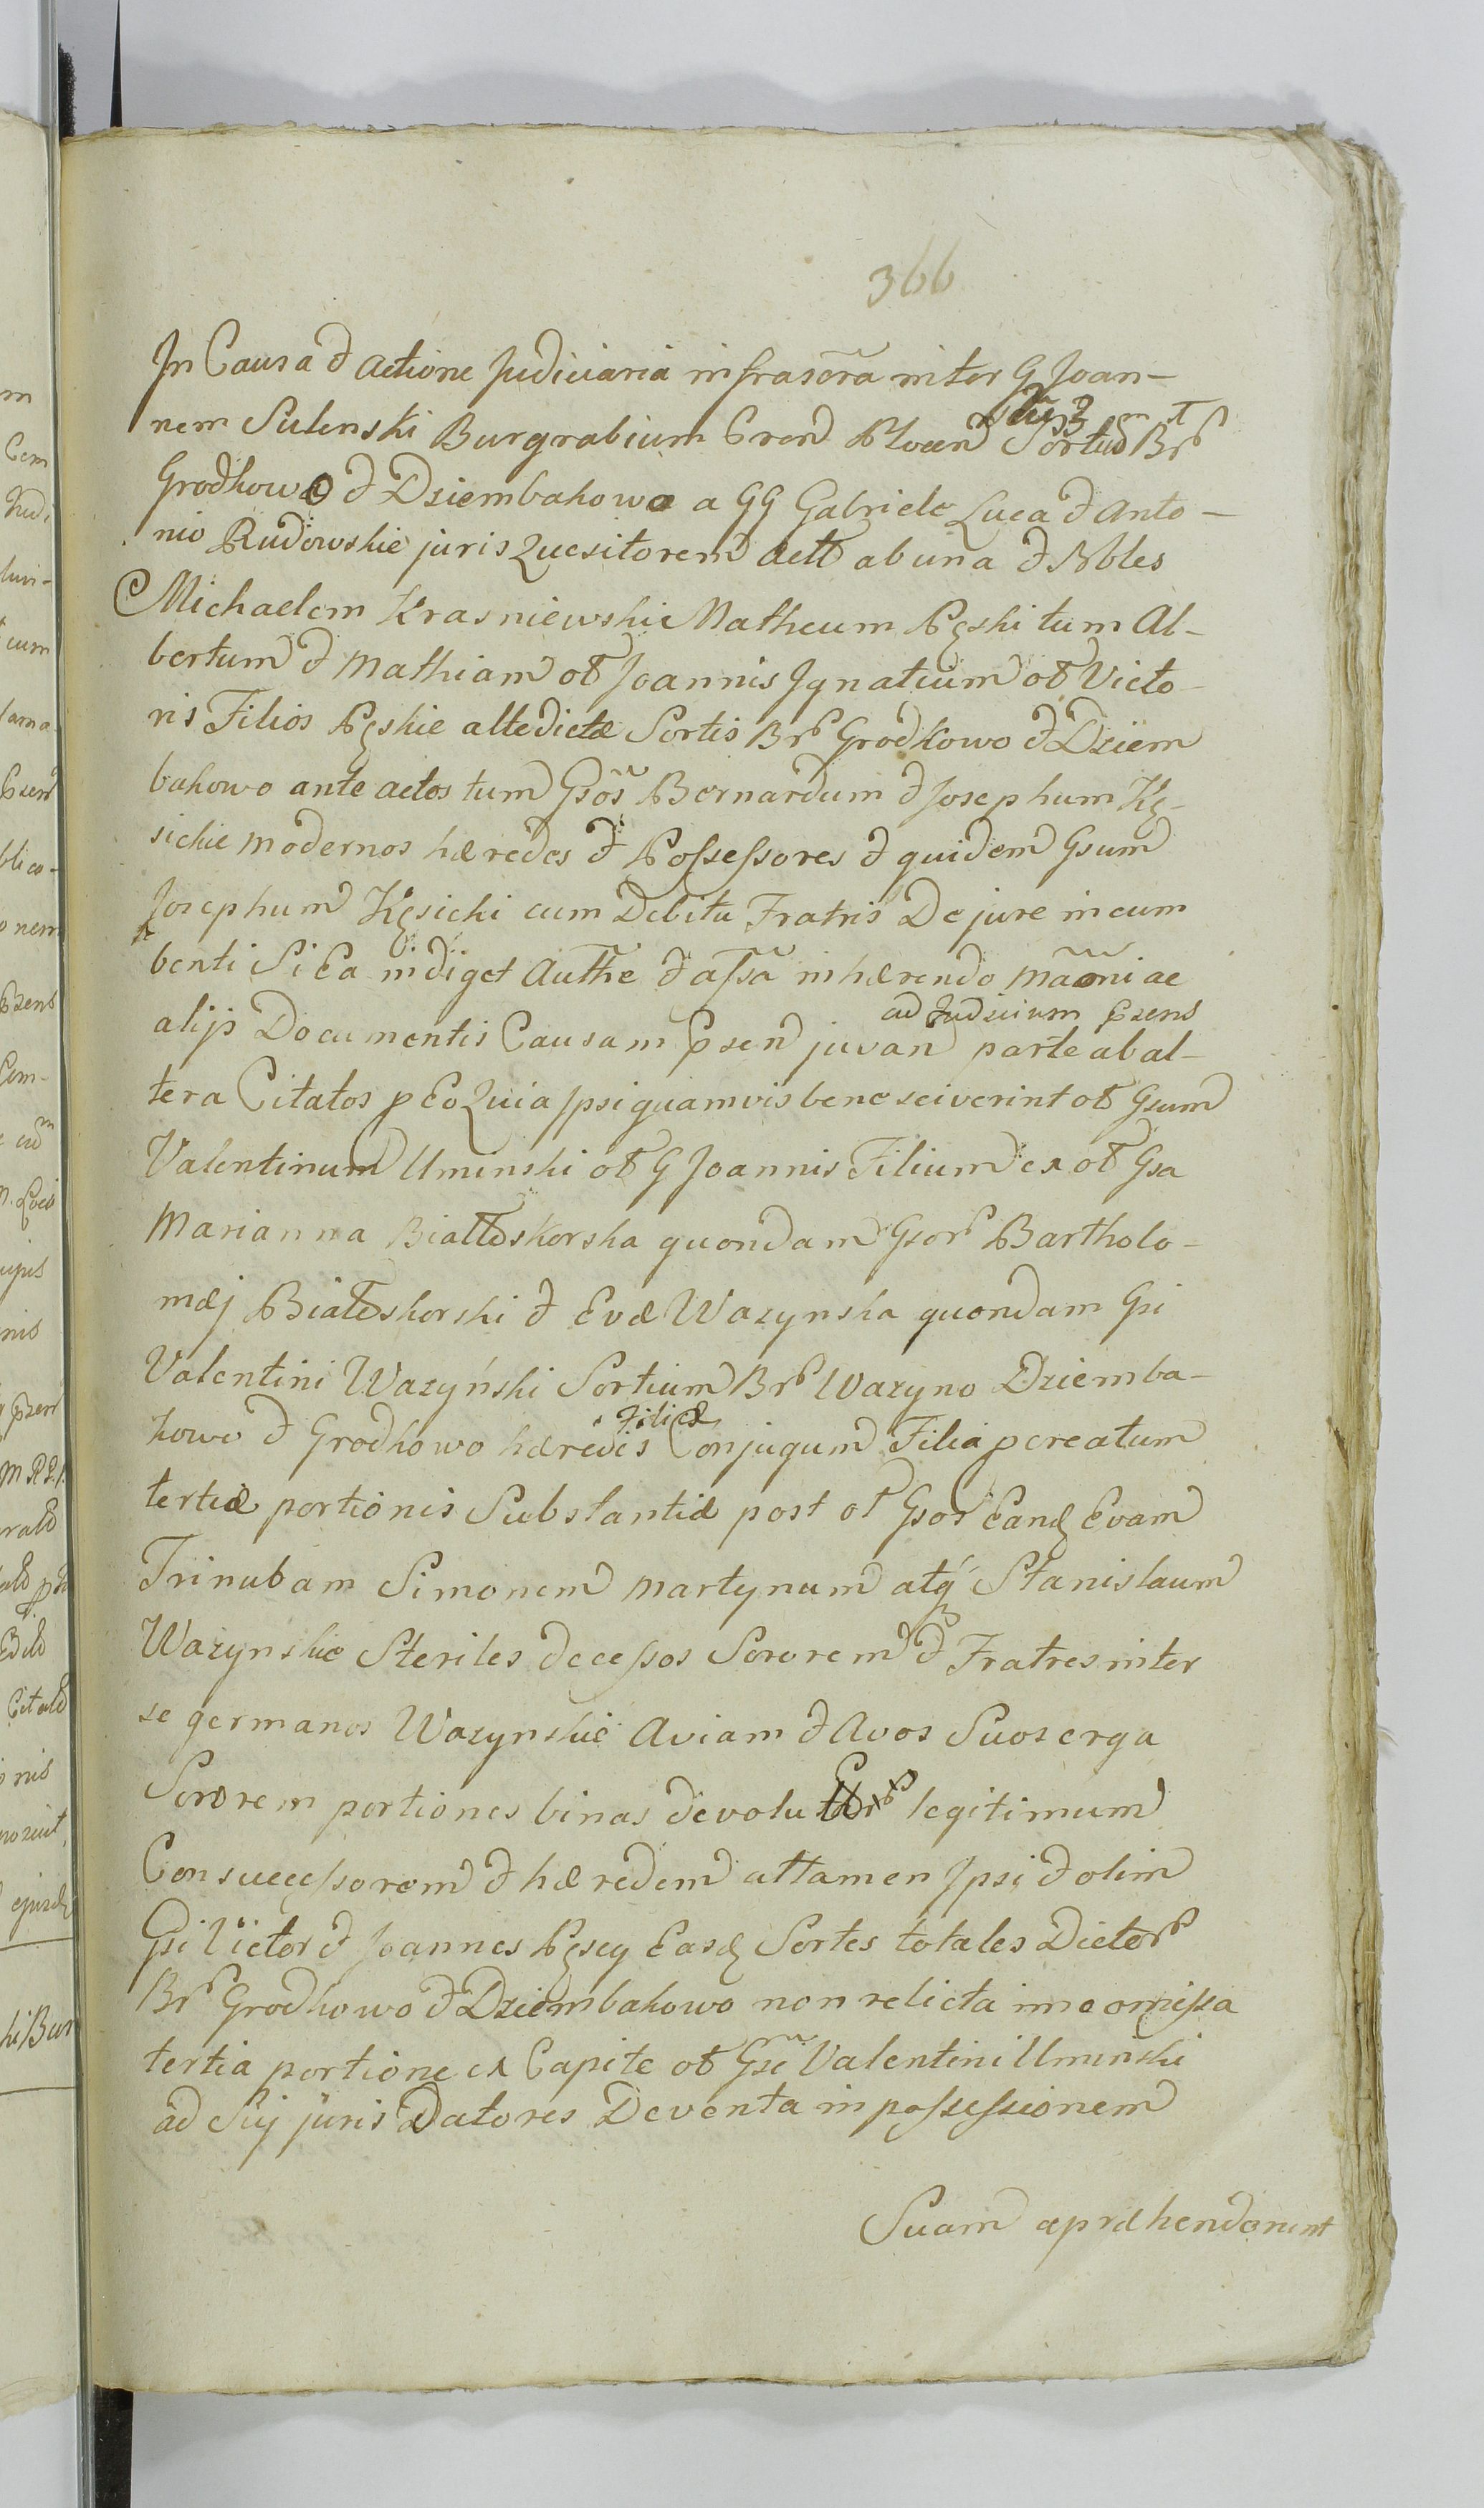 366
In Causa & actione Judiciaria infrascra inter G Joan-
nem Sulenski Burgrabium Cren Plocen Sortis Br
Grodkowo & Dziembakowo a GG Gabriele Luca & Anto-
nio Rudowskie juris Quesitorem act ab una & Nbles
Michaelem Krasniewski Matheum Pęski tum Al-
bertum & Mathiam ol Joannis Ignatium ol Victo-
ris Filios Pęskie altedictæ Sortis Br Grodkowo & Dziem
bakowo ante actos tum Gsos Bernardum & Josephum Kę-
sickie modernos hæredes & Possessores & quidem Gsum
Josephum Kęsicki cum Debitu Fratris De jure incum
benti Si Ea indiget Authe & assa inhærendo mãoni ac
ad Judicium Przens
alijs Documentis Causam Przen juvan parte ab al-
tera Citatos p Eo Quia Ipsi quamvis bene sciverint ol Gsum
Valentinum Uminski ol G Joannis Filium ex ol Gsa
Marianna Białłoskorska quondam Gsor Bartholo-
mæj Białoskorski & Evæ Wazynska quondam Gsi
Valentini Wazyński Sortium Br Wazyno Dziemba-
Filiæ
kowo & Grodkowo hæredis Conjugum Filia pcreatum
tertiæ portionis Substantiæ post ol Gsos Eandę Evam
Trinubam Simonem Martynum atq Stanislaum
Wazynskie Steriles decessos Sororem & Fratres inter
se germanos Wazynskie Aviam & Avos Suos erga
Sororem portiones binas devolu legitimum
Consuccessorem & hæredem attamen Ipsi & olim
Gsi Victor & Joannes Pęscy Easdę Sortes totales Dictor
Br Grodkowo & Dziembakowo non relicta imo omissa
tertia portione ex Capite ol Gsi Valentini Uminski
ad Sui juris Datores Deventa in possessionem
Suam apræhenderint